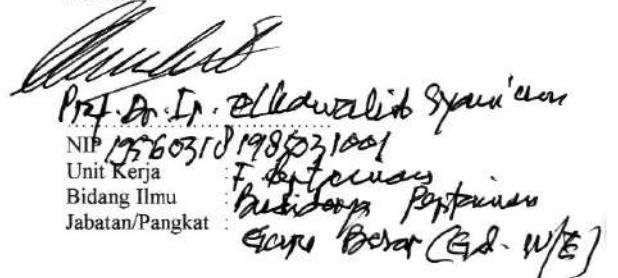 Prof. Dr. Ir. Elkawakib Syam'un
NIP 195603181985031001
Unit Kerja : F. Pertanian
Bidang Ilmu : Budidaya Pertanian
Jabatan/Pangkat : Guru Besar (Gol. IV/E)